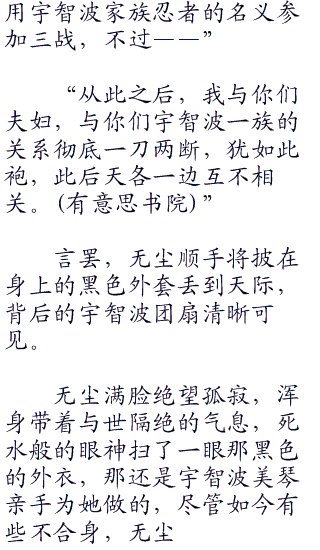 用宇智波家族忍者的名义参
加三战，不过——”
“从此之后，我与你们
夫妇，与你们宇智波一族的
关系彻底一刀两断，犹如此
袍，此后天各一边互不相
关。(有意思书院)”
言罢，无尘顺手将披在
身上的黑色外套丢到天际，
背后的宇智波团扇清晰可
见。
无尘满脸绝望孤寂，浑
身带着与世隔绝的气息，死
水般的眼神扫了一眼那黑色
的外衣，那还是宇智波美琴
亲手为她做的，尽管如今有
些不合身，无尘